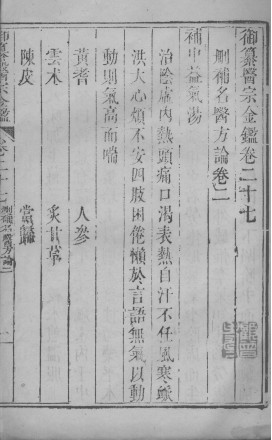 御纂醫宗金鑑卷二十七
刪補名醫方論卷二
補中益氣湯
治陰虛內熱頭痛口渴表熱自汗不任風寒脈
洪大心煩不安四肢困倦懶於言語無氣以動
動則氣高而喘
黃耆 人參
雲朮 炙甘草
陳皮 當歸
御纂醫宗金鑑